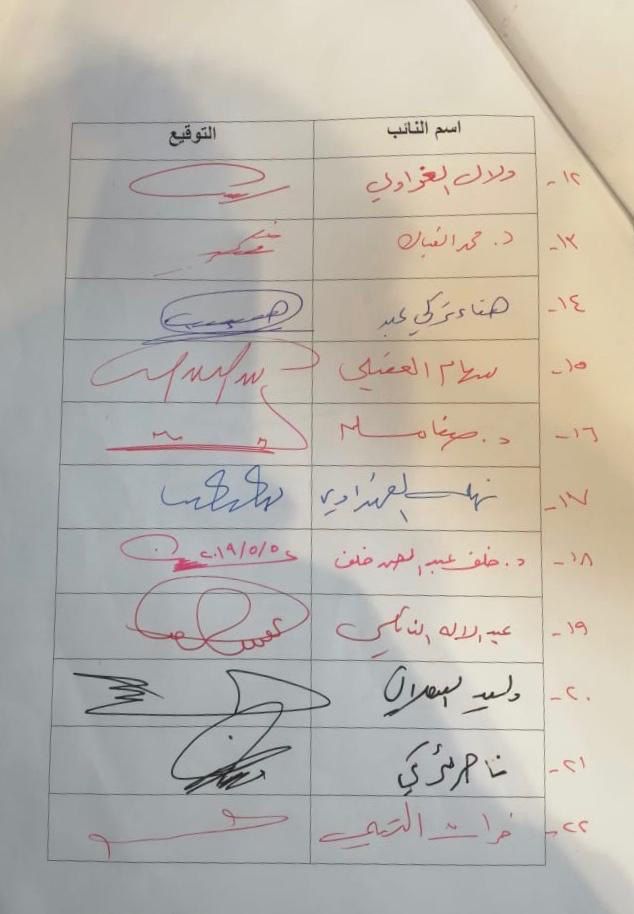 اسم النائب التوقيع
١٢- دلال الغراوي
١٣- د. محمد
١٤- هناء تركي عبد
١٥- سهام العقيلي
١٦- د. صفاء مسلم
١٧- نهلة الهنداوي
١٨- د. خلف عبد الصمد خلف ٢٠١٩/٥/٥
١٩- عبد الاله النائلي
٢٠- وليد السهلان
٢١- ناصر تركي
٢٢- فرات التميمي